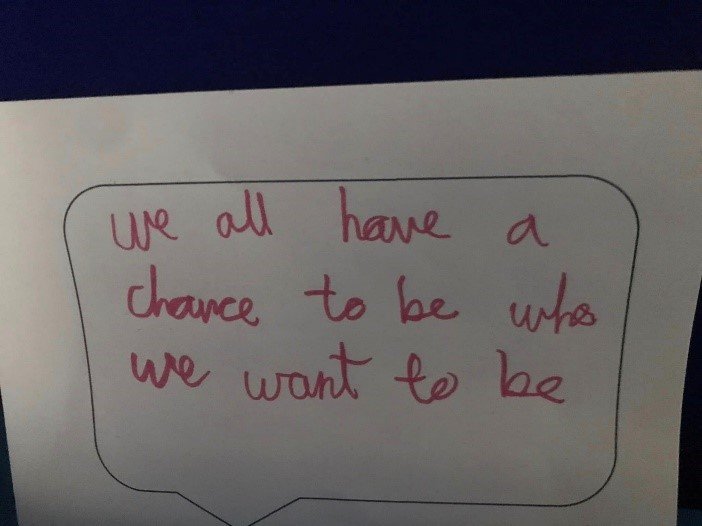 we all have a
chance to be who
we want to be